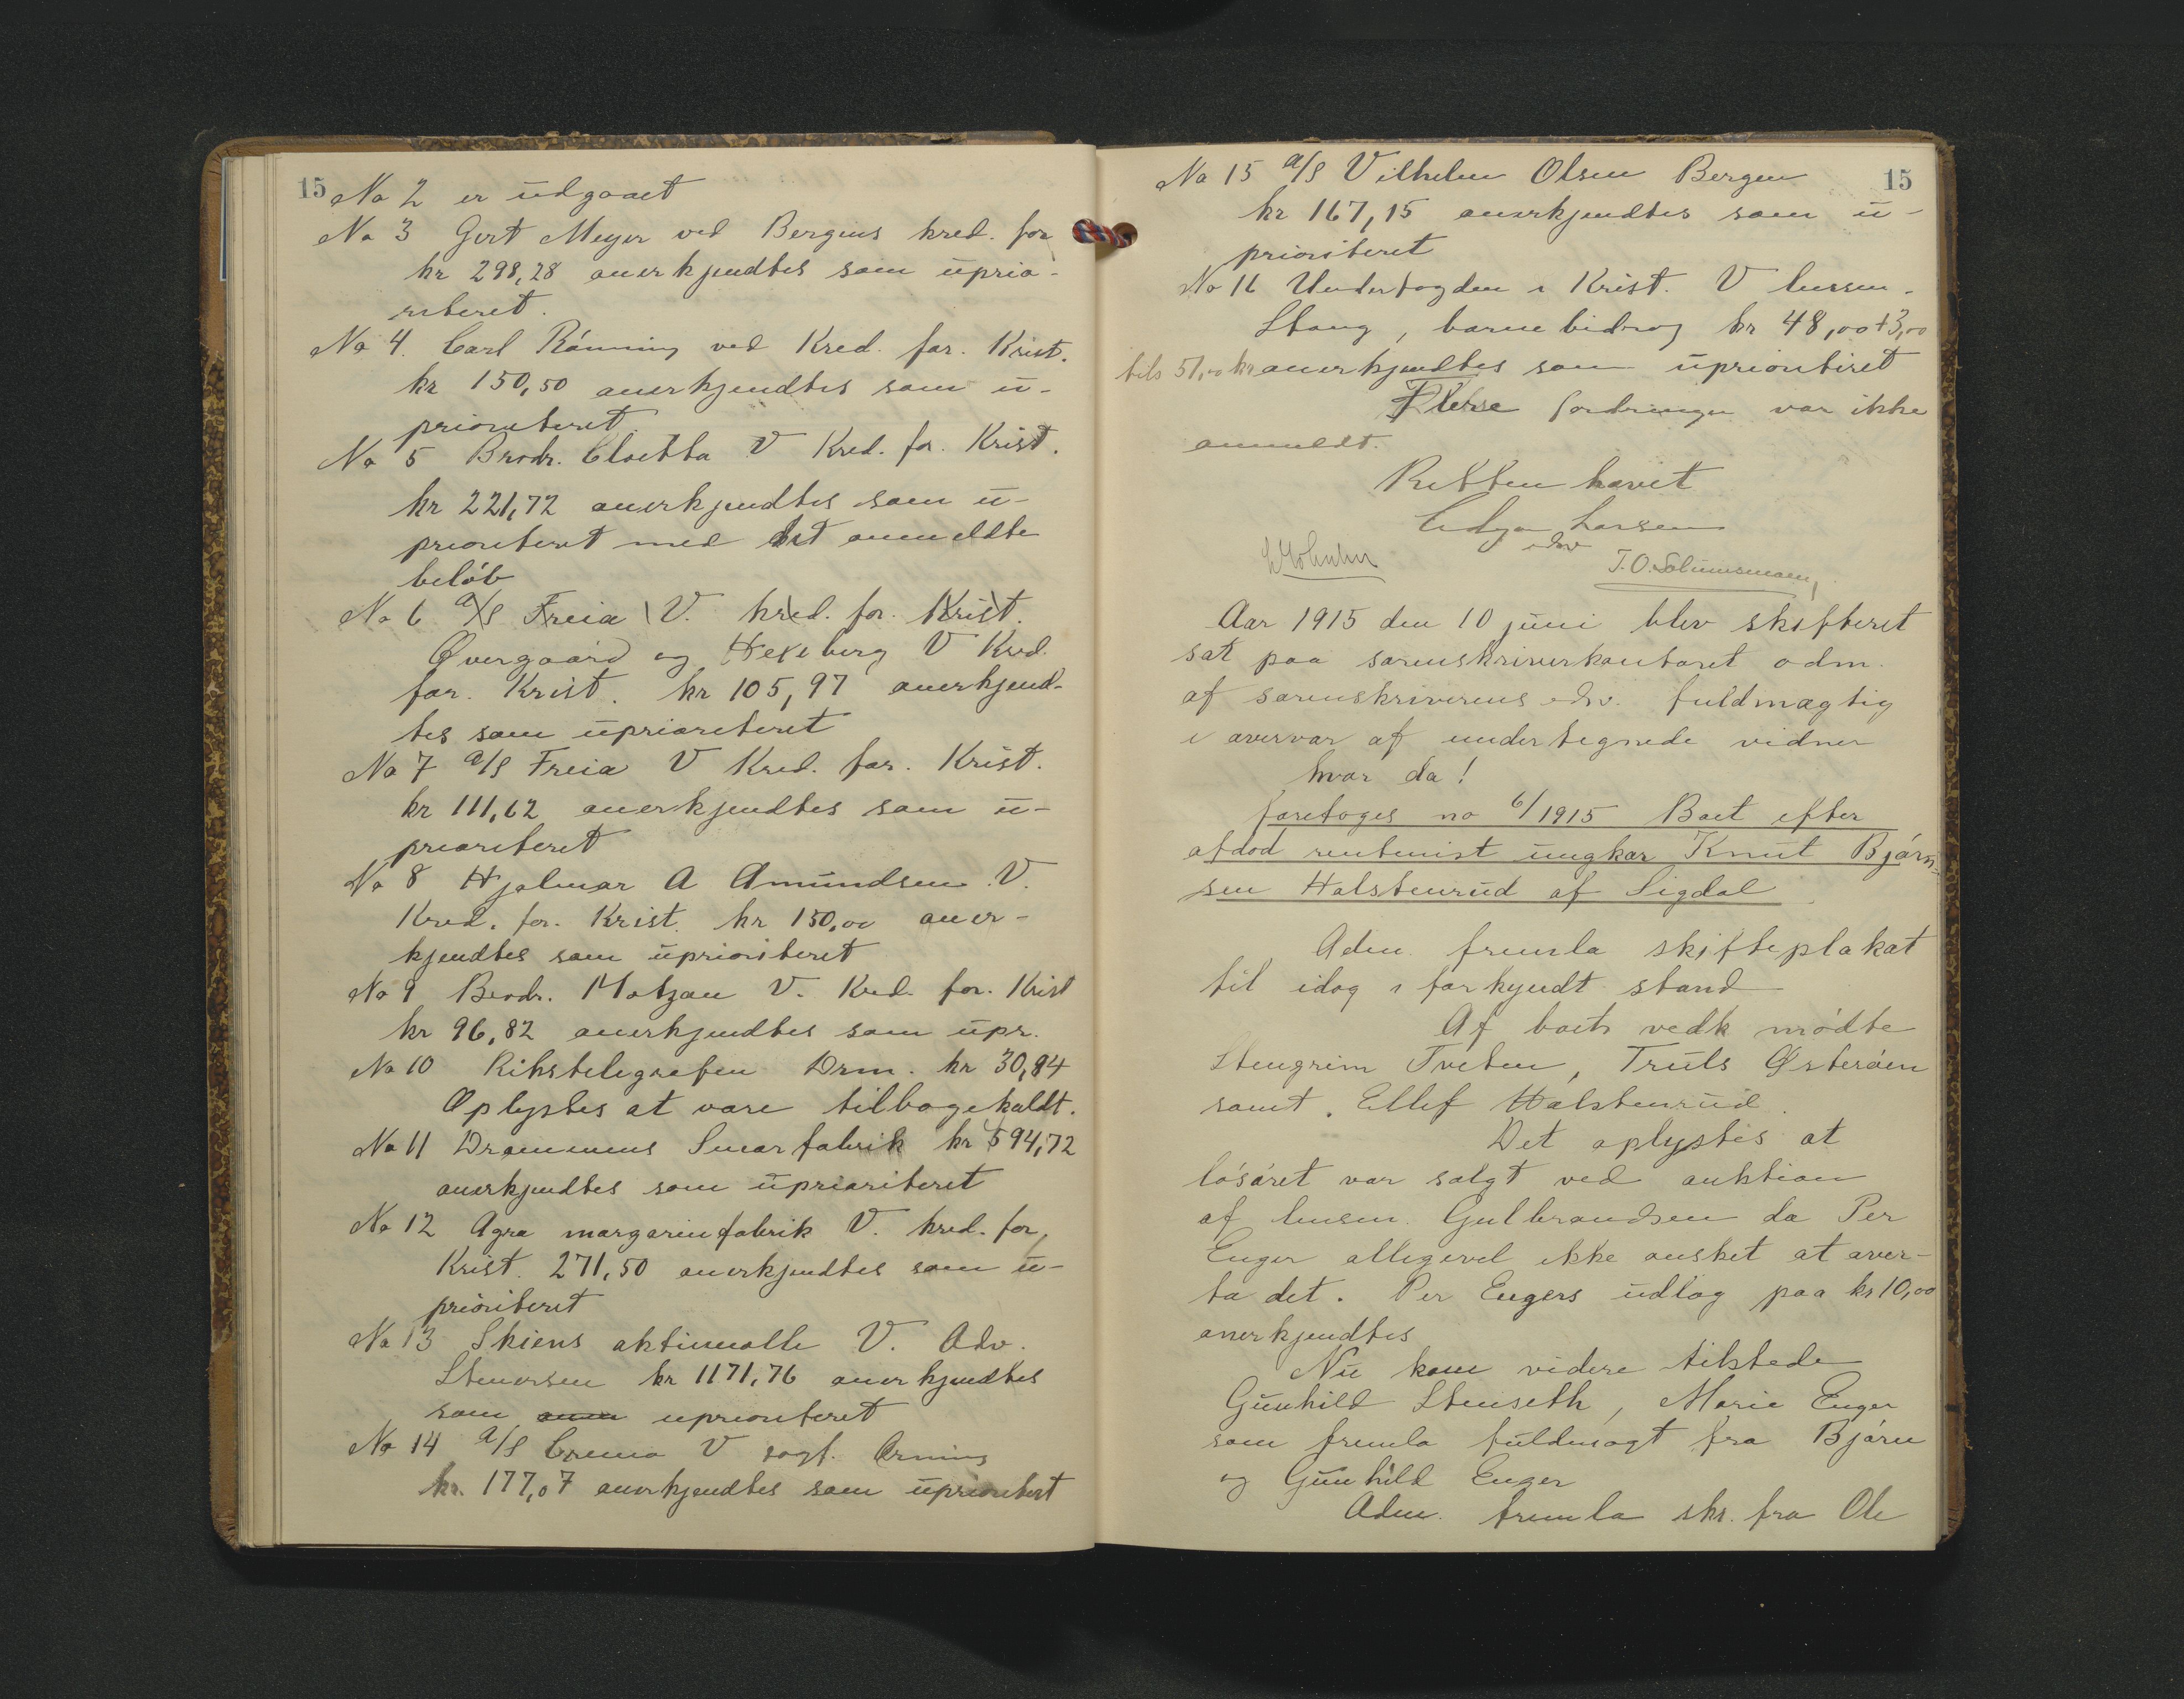 15
No 2 er udgaaet
No 3 Gert Meyer ved Bergens kred. for
kr 298,28 anerkjendtes som uprio-
riteret.
No 4. Carl Rönning ved Kred. for. Krist.
kr 150,50 anerkjendtes som u-
prioriteret.
No 5 Brodr. Cloetta V Kred. for. Krist.
kr 221,72 anerkjendtes som u-
prioriteret med det anmeldte
belöb
No 6 A/S Freia V. kred. for. Krist.
Overgaard og Hexeberg V Kred.
for. Krist. kr 105,97 anerkjend-
tes som uprioriteret
No 7 A/S Freia V Kred. for. Krist.
kr 111,62 anerkjendtes som u-
prioriteret
No 8 Hjalmar A Amundsen V.
Kred. for. Krist. kr 150,00 aner-
kjendtes som uprioriteret
No 9 Brodr. Matzau V. Kred. for. Krist
kr 96,82 anerkjendtes som upr.
No 10 Rikstelegrafen Drm. kr 30,84
Oplystes at være tilbagekaldt.
No 11 Drammens Smørfabrik kr 594,72
anerkjendtes som uprioriteret
No 12 Agra margarinfabrik V. kred. for.
Krist. 271,50 anerkjendtes som u-
prioriteret
No 13 Skiens aktiemølle V. Adv.
Stenersen kr 1171,76 anerkjendtes
som uprioriteret
No 14 A/S Crema V sagf. Orning
kr. 177,07 anerkjendtes som uprioritert
15
No 15 A/S Vilhelm Olsen Bergen
kr 167,15 anerkjendtes som u-
prioriteret
No 16 Underfogden i Krist. V lensm.
Stang, barnebidrag kr 48,00 + 3,00
tils 51,00 kr anerkjendtes som uprioritiret
Flere fordringer var ikke
anmeldt.
Retten hævet
Edgar Larsen
edsv
J.O. Solumsmoen,
Aar 1915 den 10 juni blev skifteret
sat paa sorenskriverkontoret adm.
af sorenskriverens edsv. fuldmægtig
i overvær af undertegnede vidner
hvor da!
foretoges no 6/1915 Boet efter
afdød rentenist ungkar Knut Björn-
sen Halstenrud af Sigdal
Adm. fremla skifteplakat
til idag i forkyndt stand
Af boets vedk mödte
Stengrim Tveten, Truls Østeröen
samt. Ellef Halstenrud.
Det oplystes at
lösöret var solgt ved auktion
af lensm. Gulbrandsen da Per
Enger alligevel ikke ønsket at over-
ta det. Per Engers udlæg paa kr 10,00
anerkjendtes
Nu kom videre tilstede
Gunhild Stenseth, Marie Enger
som fremla fuldmagt fra Björn
og Gunhild Enger
Adm. fremla skr. fra Ole